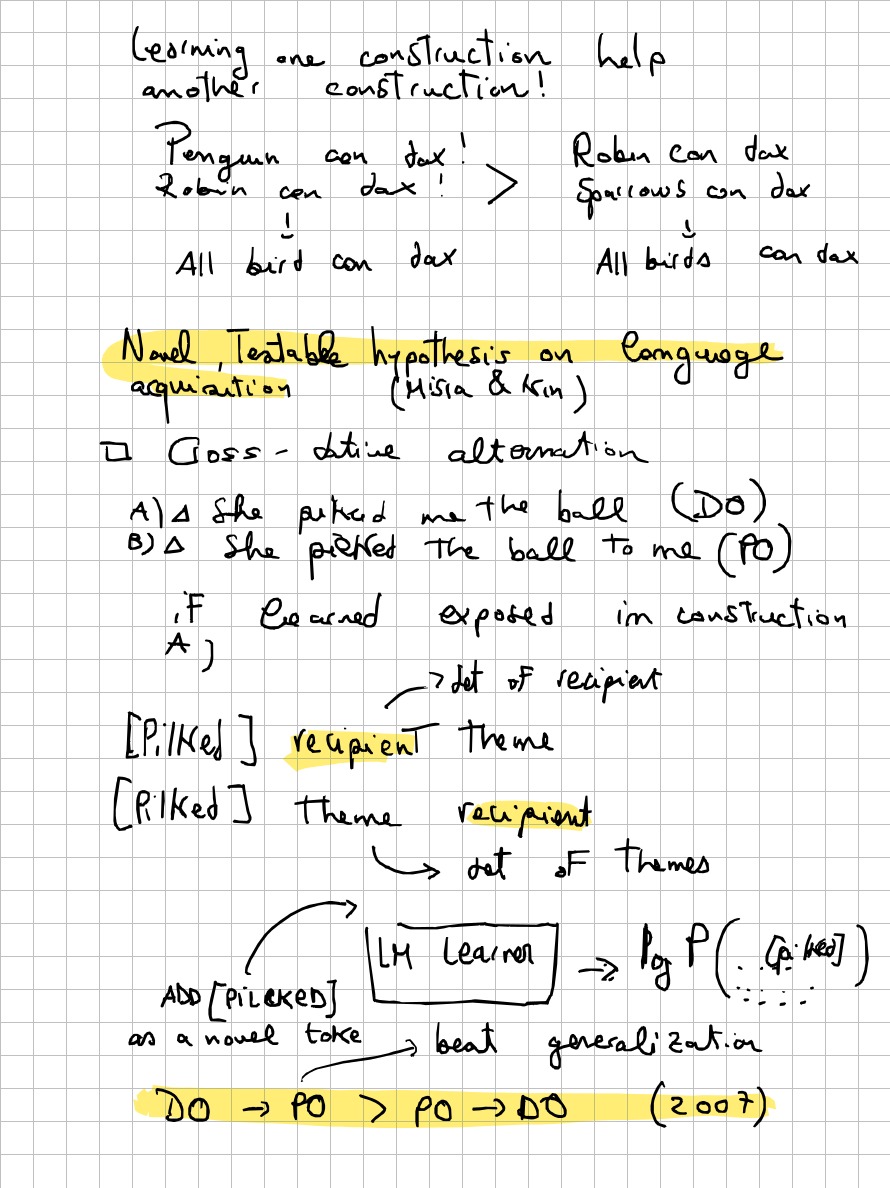 Learning one construction help
another construction!
Penguin can dax! > Robin can dax
Robin can dax! Sparrows can dax
↓ ↓
All bird can dax All birds can dax
Novel, Testable hypothesis on language
acquisition (Misra & Kim)
□ Cross-dative alternation
A) △ She pilked me the ball (DO)
B) △ She pilked the ball to me (PO)
if learned exposed in construction
A)
→ det of recipient
[Pilked] recipient theme
[Pilked] Theme recipient
→ det of Themes
LM learner → log P( [pilked] )
ADD [PILCKED]
as a novel toke → beat generalization
DO → PO > PO → DO (2007)